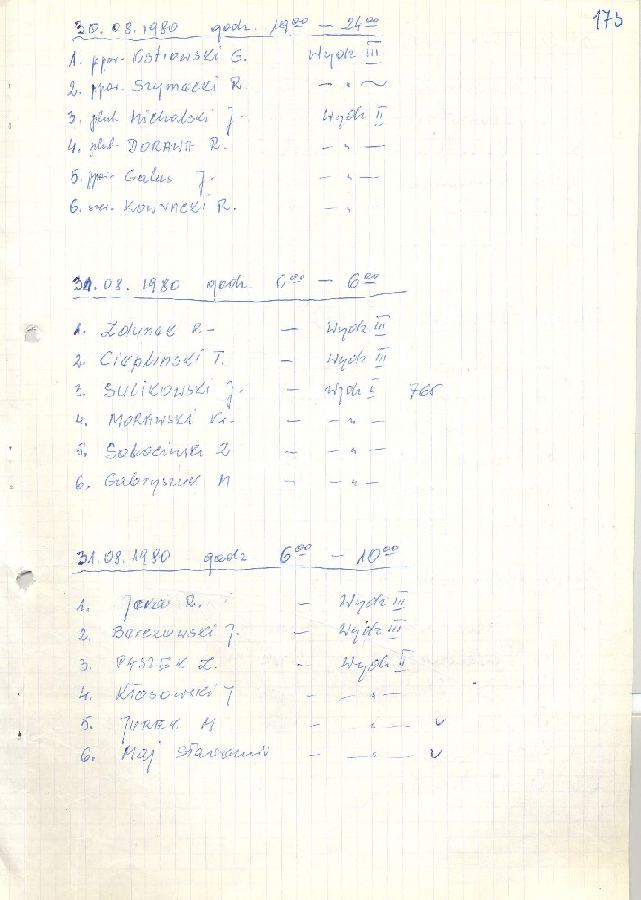 175
30.08.1980 godz. 19⁰⁰ – 24⁰⁰
1. ppor. Ostrowski G. Wydz III
2. ppor. Szymacki R. – " –
3. plut. Michalski J. Wydz II
4. plut. DORAWA R. – " –
5. ppor. Galus J. – " –
6. KOWNACKI R. – "
31.08.1980 godz. – 6⁰⁰
1. Zdunek R. – Wydz III
2. Ciepliński T. – Wydz III
3. SULIKOWSKI J. – Wydz II 765
4. MORAWSKI – " –
5. Sobociński Z – " –
6. Gabryszuk M – " –
31.08.1980 godz 6⁰⁰ – 10⁰⁰
1. R. – Wydz III
2. J. – Wydz III
3. PASZEK Z. – Wydz II
4. Kłosowski J – " –
5. JUREK M – " – v
6. Maj – " – v